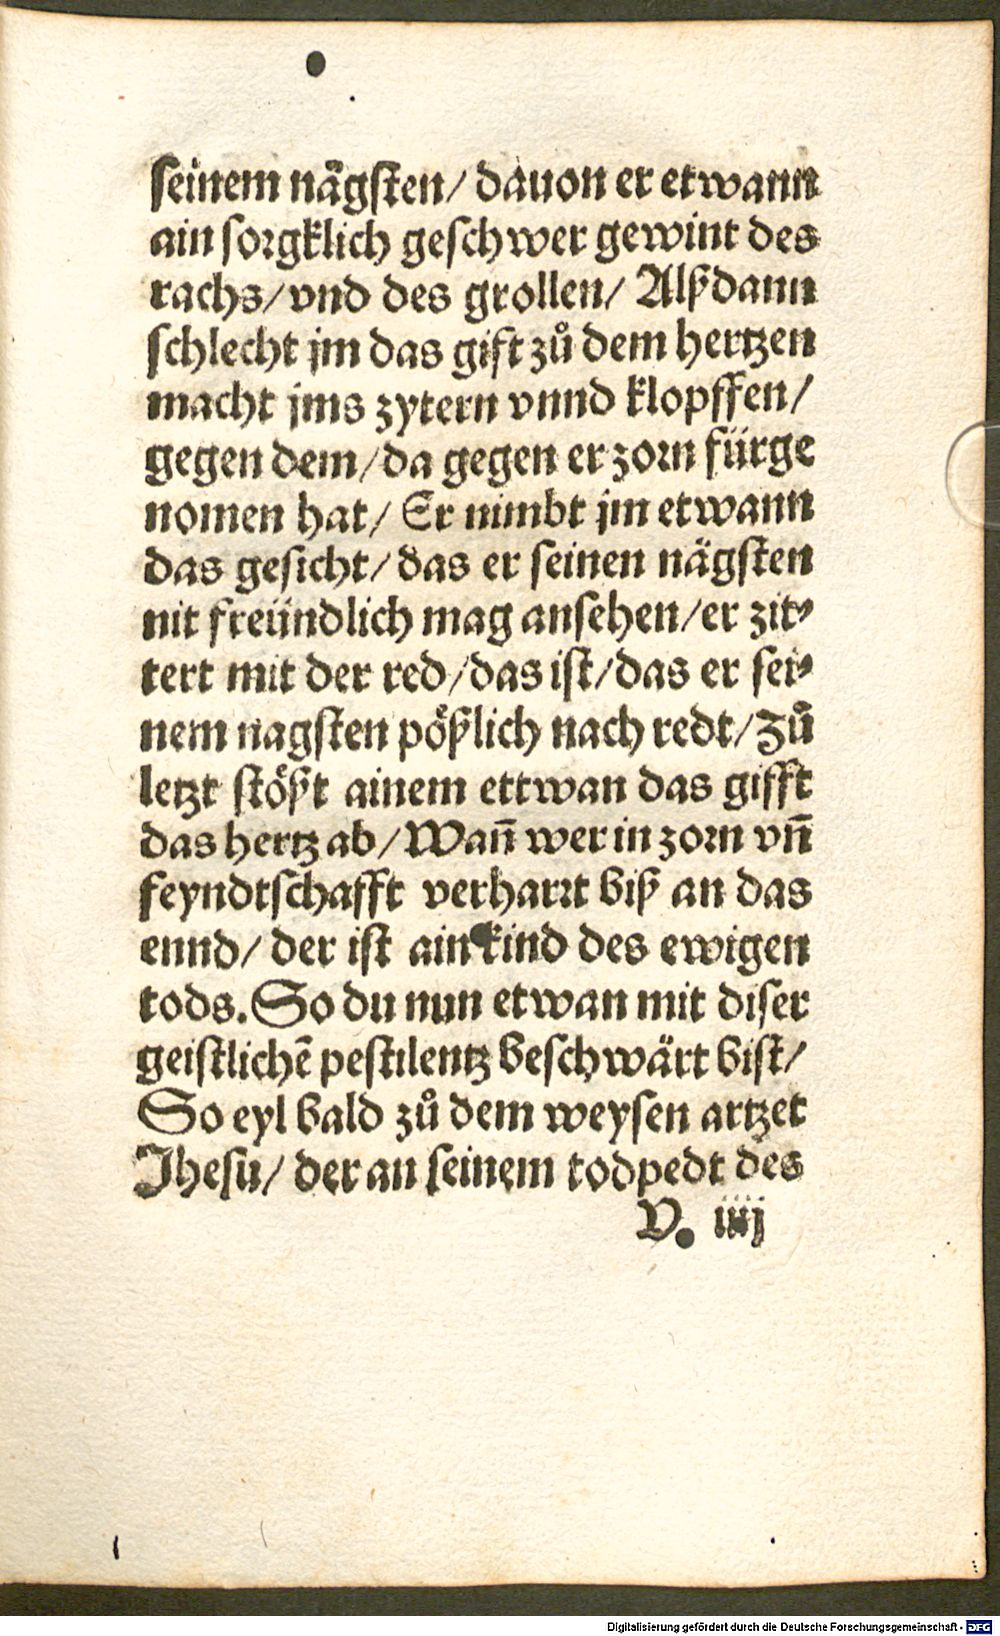 seinem nägsten/ dauon er etwann
ain sorgklich geschwer gewint des
rachs/ vnd des grollen/ Alßdann
schlecht jm das gift zů dem hertzen
macht jms zytern vnnd klopffen/
gegen dem/ da gegen er zorn fürge
nomen hat/ Er nimbt jm etwann
das gesicht/ das er seinen nägsten
nit freündlich mag ansehen/ er zit⸗
tert mit der red/ das ist/ das er sei⸗
nem nagsten pößlich nach redt/ Zů
letzt stößt ainem ettwan das gifft
das hertz ab/ Wañ wer in zorn vñ
feyndtschafft verharrt biß an das
ennd/ der ist ain kind des ewigen
tods. So du nun etwan mit diser
geistlichē pestilentz beschwärt bist/
So eyl bald zů dem weysen artzet
Jhesu/ der an seinem todpedt des
V. iiij
Digitalisierung gefördert durch die Deutsche Forschungsgemeinschaft - DFG